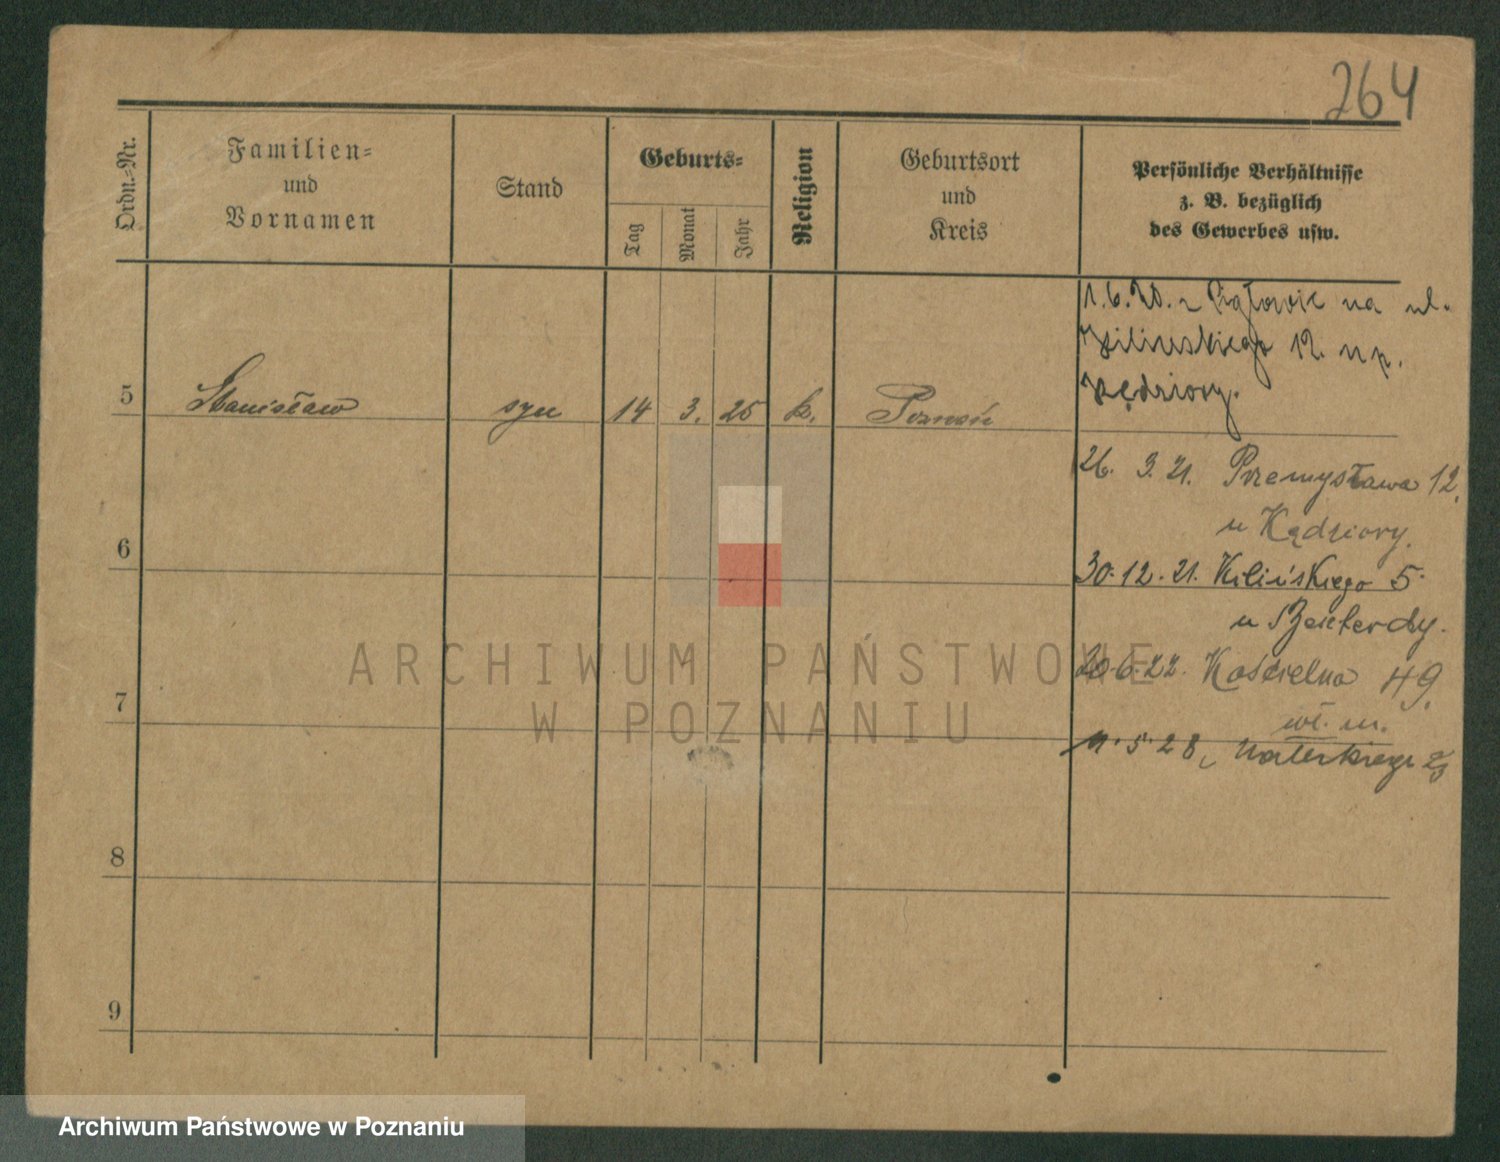 264
Ordn.-Nr.
Familien-
und
Vornamen
Stand
Geburts-
Tag
Monat
Jahr
Religion
Geburtsort
und
Kreis
Persönliche Verhältnisse
z. B. bezüglich
des Gewerbes usw.
1.6.20. z na ul.
Kilińskiego 12. u p.
Kędziory.
5 Stanisław syn 14 3. 25 k. Poznań
26. 3. 21. Przemysława 12.
u Kądziory.
6
30.12.21. Kilińskiego 5
u
20.6.22. Kościelna 49.
wł. m.
7
5.28,
8
9
ARCHIWUM PAŃSTWOWE
W POZNANIU
Archiwum Państwowe w Poznaniu